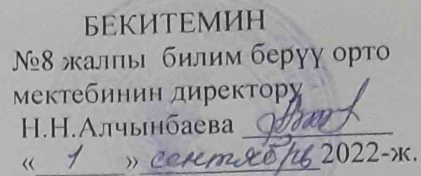 БЕКИТЕМИН
№8 жалпы билим берүү орто
мектебинин директору
Н.Н.Алчынбаева
« 1 » сентябрь 2022-ж.